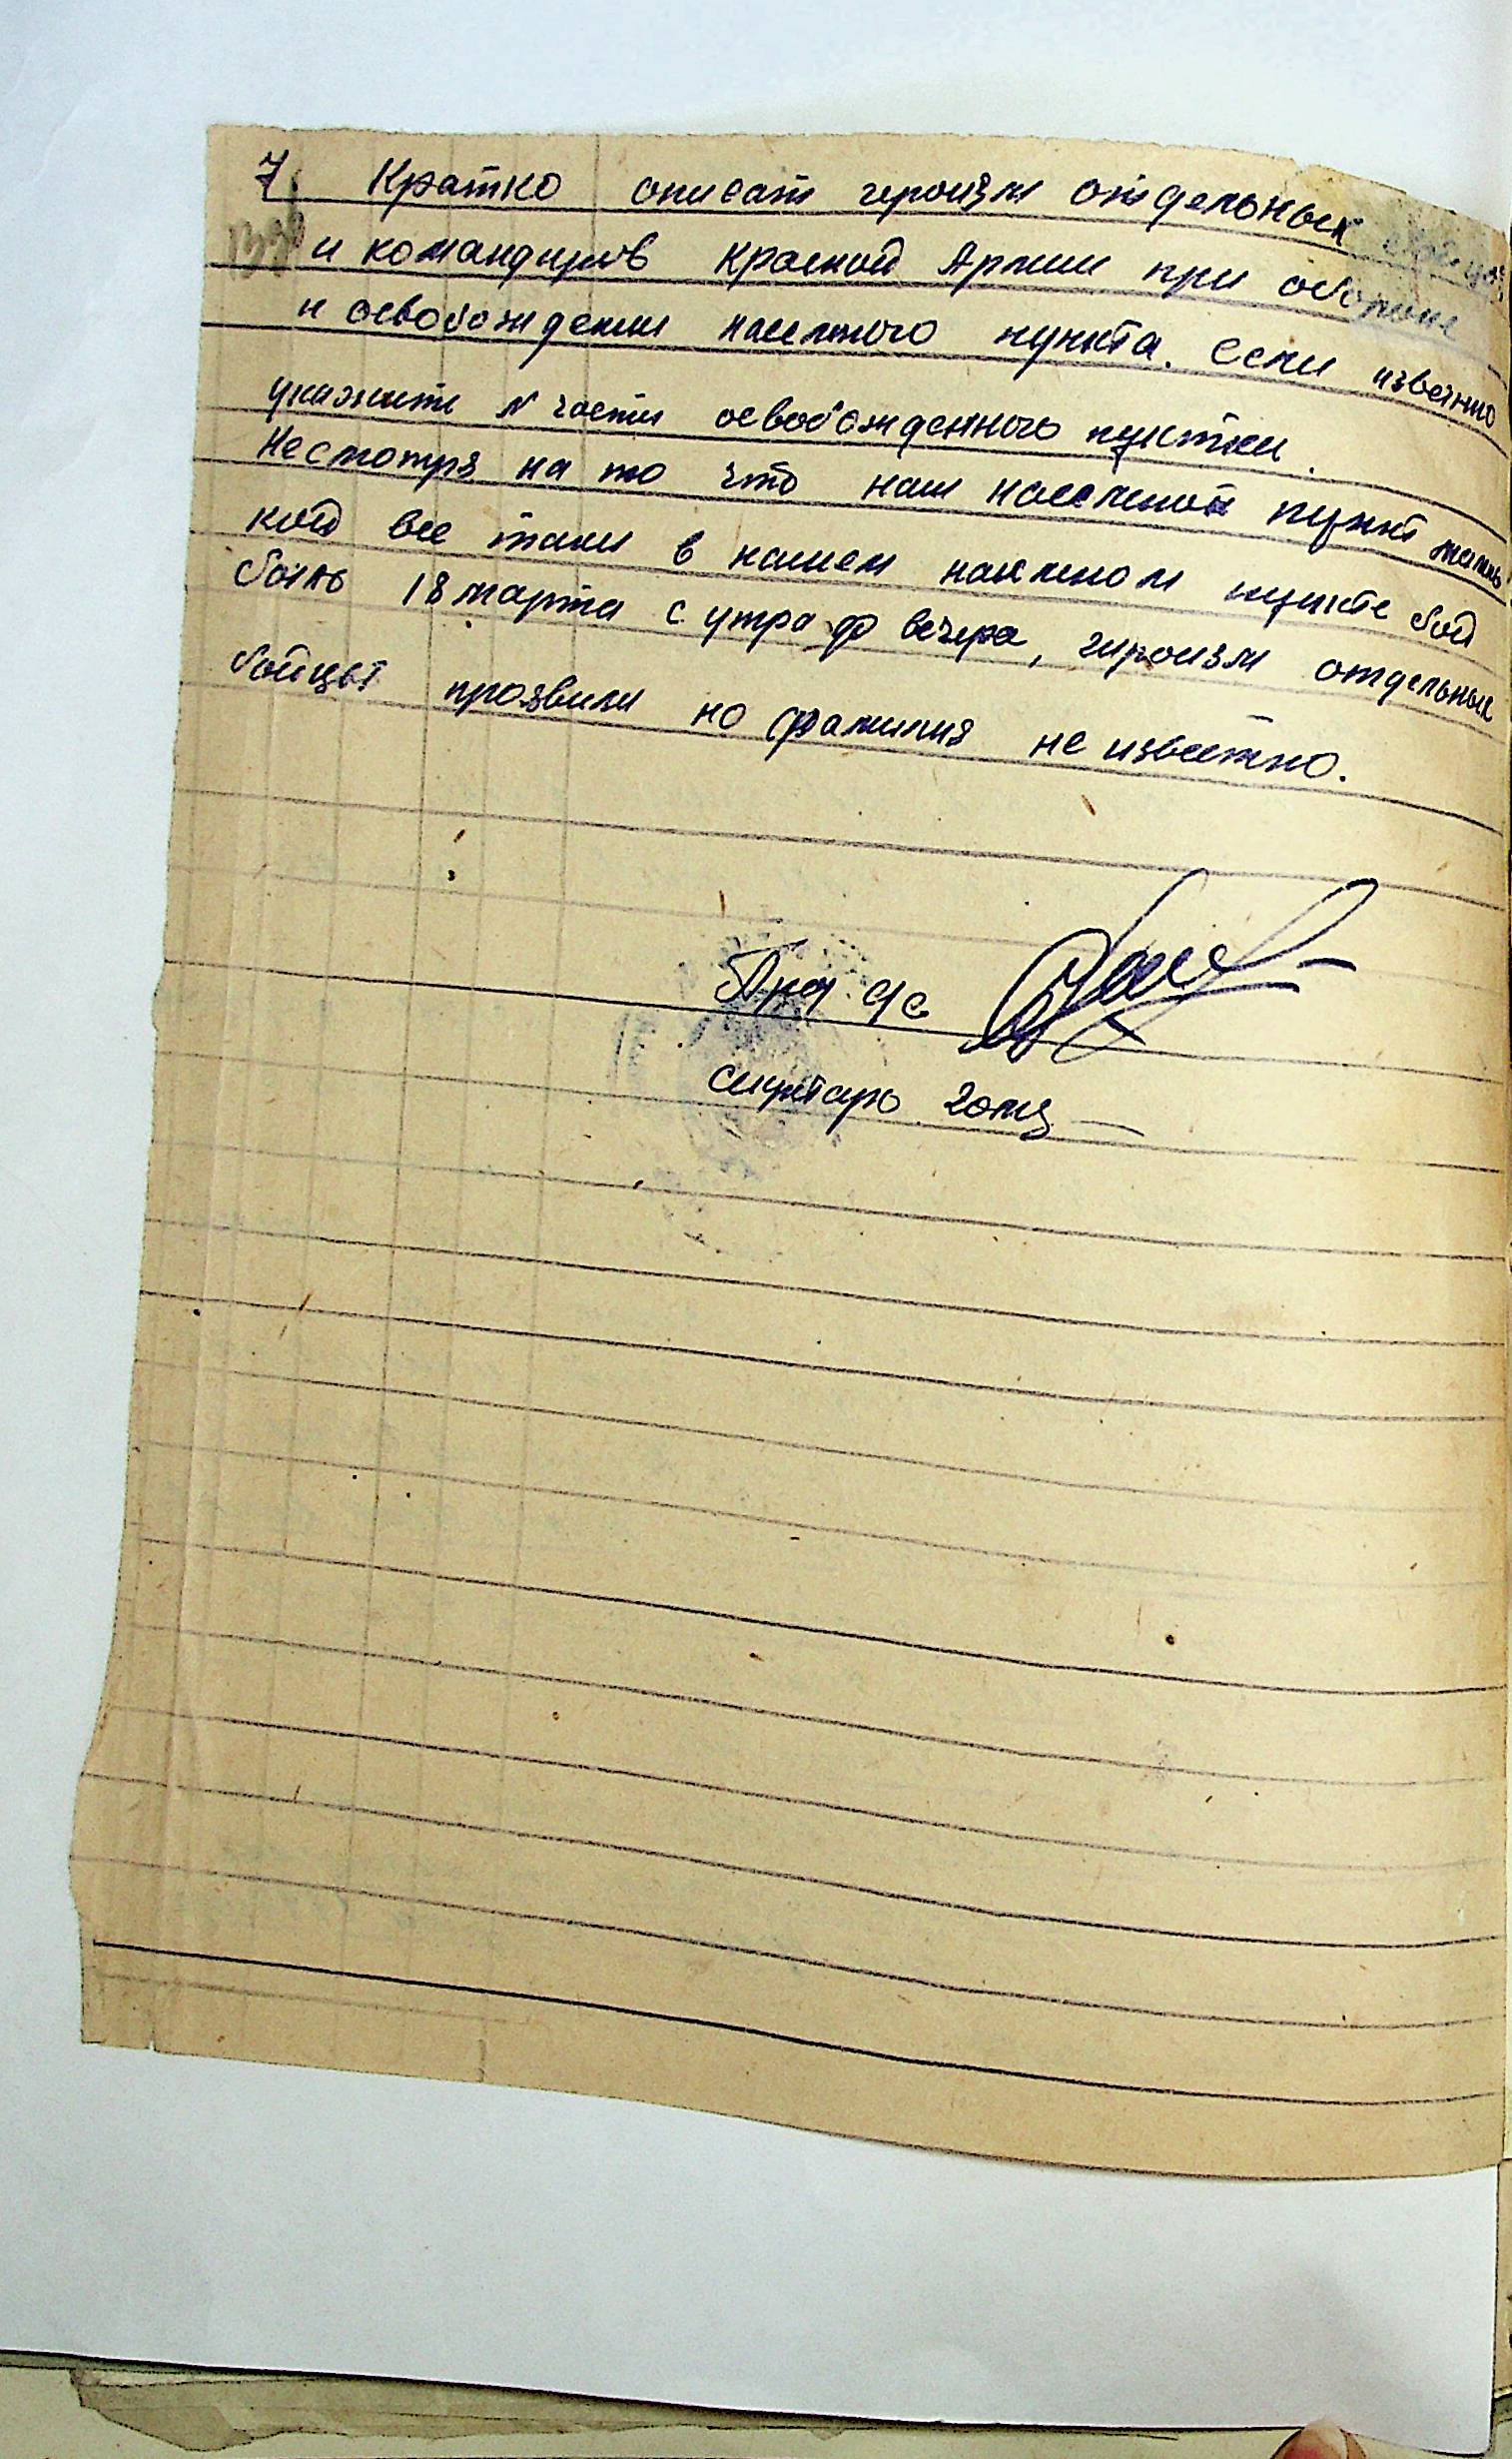 7. Кратко описать героизм отдельных бойцов
и командиров Красной Армии при обороне
и освобождении населенного пункта. если известно
укажите N части освобожденного пункта.
Несмотря на то что наш населеной пункт малень
кой все таки в нашем населеном пункте бой
было 18 марта с утра до вечера, гироизм отдельных
бойцы проявили но фамилия не известно.
Пред. с/с
секретарь